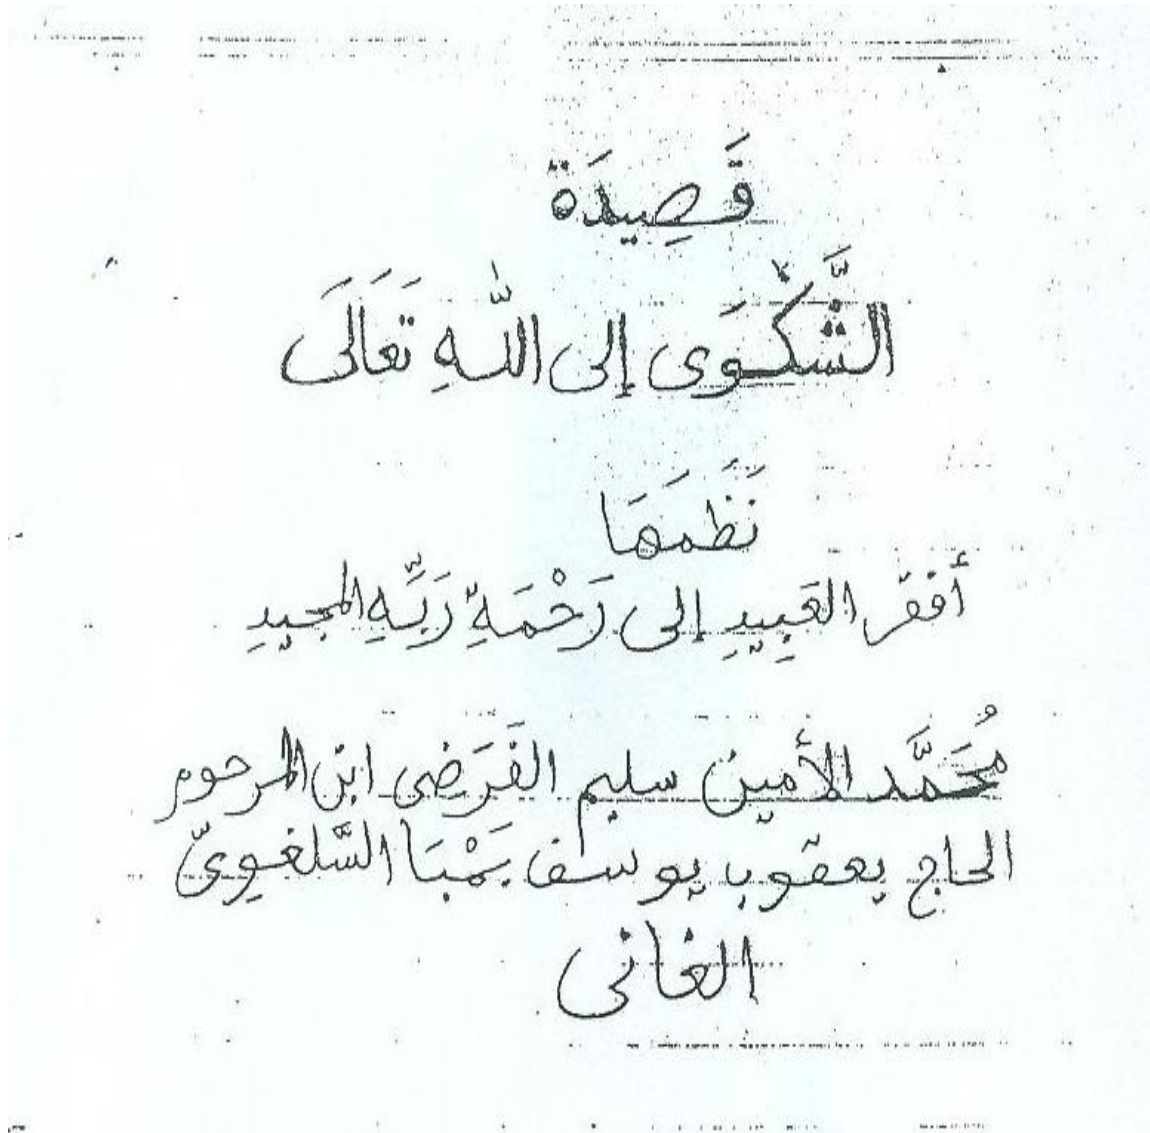 قَصِيدَة
الشَّكْوَى إلى اللّٰهِ تَعَالَى
نَظَمَهَا
أفقر العَبِيدِ إلى رَحْمَةِ رَبِّهِ المجيدِ
مُحَمَّد الأمين سليم الفَرَضِى ابن المرحوم
الحاج يعقوب يوسف بَمْبَا السَّلغوِىّ
الغانى